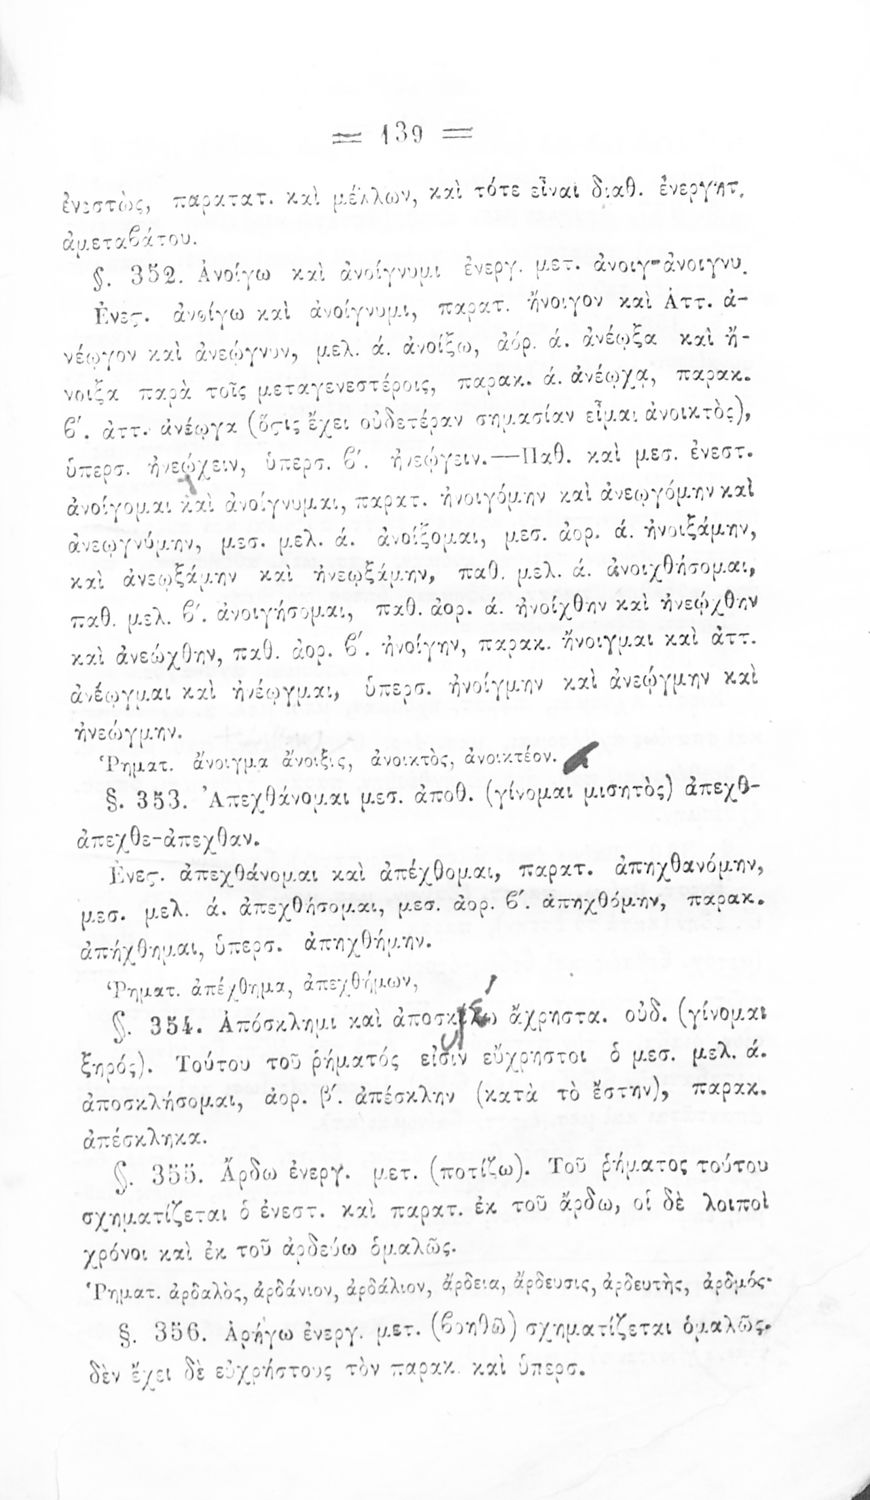 = 139 =
ἐνεστὼς, παρατατ. καὶ μέλλων, καὶ τότε εἶναι διαθ. ἐνεργητ.
ἀμεταβάτου.
§. 352. Ἀνοίγω καὶ ἀνοίγνυμι ἐνεργ. μετ. ἀνοιγ-ἀνοιγνυ.
Ἐνεϛ. ἀνοίγω καὶ ἀνοίγνυμι, παρατ. ἤνοιγον καὶ Ἀττ. ἀ-
νέῳγον καὶ ἀνεῴγνυν, μελ. ά. ἀνοίξω, ἀόρ. ά. ἀνέῳξα καὶ ἤ-
νοιξα παρὰ τοῖς μεταγενεστέροις, παρακ. ά. ἀνέῳχα, παρακ.
ϐ′. ἀττ. ἀνέῳγα (ὅϛις ἔχει οὐδετέραν σημασίαν εἶμαι ἀνοικτὸς),
ὑπερσ. ἠνεῴχειν, ὑπερσ. ϐ′. ἠνεῴγειν.—Παθ. καὶ μεσ. ἐνεστ.
ἀνοίγομαι καὶ ἀνοίγνυμαι, παρατ. ἠνοιγόμην καὶ ἀνεῳγόμην καὶ
ἀνεῳγνύμην, μεσ. μελ. ά. ἀνοίξομαι, μεσ. ἀορ. ά. ἠνοιξάμην,
καὶ ἀνεῳξάμην καὶ ἠνεῳξάμην, παθ. μελ. ά. ἀνοιχθήσομαι,
παθ. μελ. ϐ′. ἀνοιγήσομαι, παθ. ἀορ. ά. ἠνοίχθην καὶ ἠνεῴχθην
καὶ ἀνεώχθην, παθ. ἀορ. ϐ′. ἠνοίγην, παρακ. ἤνοιγμαι καὶ ἀττ.
ἀνέῳγμαι καὶ ἠνέῳγμαι, ὑπερσ. ἠνοίγμην καὶ ἀνεῴγμην καὶ
ἠνεώγμην.
Ῥηματ. ἄνοιγμα ἄνοιξις, ἀνοικτὸς, ἀνοικτέον.
§. 353. Ἀπεχθάνομαι μεσ. ἀποθ. (γίνομαι μισητὸς) ἀπεχθ-
ἀπεχθε-ἀπεχθαν.
Ἐνεϛ. ἀπεχθάνομαι καὶ ἀπέχθομαι, παρατ. ἀπηχθανόμην,
μεσ. μελ. ά. ἀπεχθήσομαι, μεσ. ἀορ. ϐ′. ἀπηχθόμην, παρακ.
ἀπήχθημαι, ὑπερσ. ἀπηχθήμην.
Ῥηματ. ἀπέχθημα, ἀπεχθήμων,
§. 354. Ἀπόσκλημι καὶ ἄχρηστα. οὐδ. (γίνομαι
ξηρός). Τούτου τοῦ ῥήματός εἰσιν εὔχρηστοι ὁ μεσ. μελ. ά.
ἀποσκλήσομαι, ἀορ. β′. ἀπέσκλην (κατὰ τὸ ἔστην), παρακ.
ἀπέσκληκα.
§. 355. Ἄρδω ἐνεργ. μετ. (ποτίζω). Τοῦ ῥήματος τούτου
σχηματίζεται ὁ ἐνεστ. καὶ παρατ. ἐκ τοῦ ἄρδω, οἱ δὲ λοιποὶ
χρόνοι καὶ ἐκ τοῦ ἀρδεύω ὁμαλῶς.
Ῥηματ. ἀρδαλὸς, ἀρδάνιον, ἀρδάλιον, ἄρδεια, ἄρδευσις, ἀρδευτὴς, ἀρδμός·
§. 356. Ἀρήγω ἐνεργ. μετ. (βοηθῶ) σχηματίζεται ὁμαλῶς.
δὲν ἔχει δὲ εὐχρήστους τὸν παρακ. καὶ ὑπερσ.